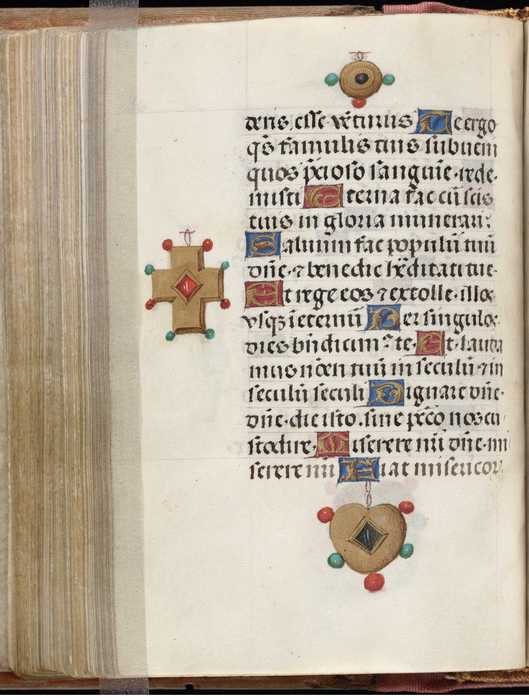 deris esse venturus Te ergo
qs famulis tuis subueni
quos p̄cioso sanguine rede
misti Eterna fac cū scīs
tuis in gloria munerari:
Saluum fac populū tuū
dn̄e ⁊ benedic hēditati tue
Et rege eos ⁊ extolle illos
vsq̄ ī eternū Per singulos
dies bn̄dicimꝰ te Et lauda
mus nomen tuū in seculū ⁊ in
seculū seculi Dignare dn̄e
die isto sine pctō nos cu
stodire Miserere nr̄i dn̄e mi
serere nr̄i Fiat misericor